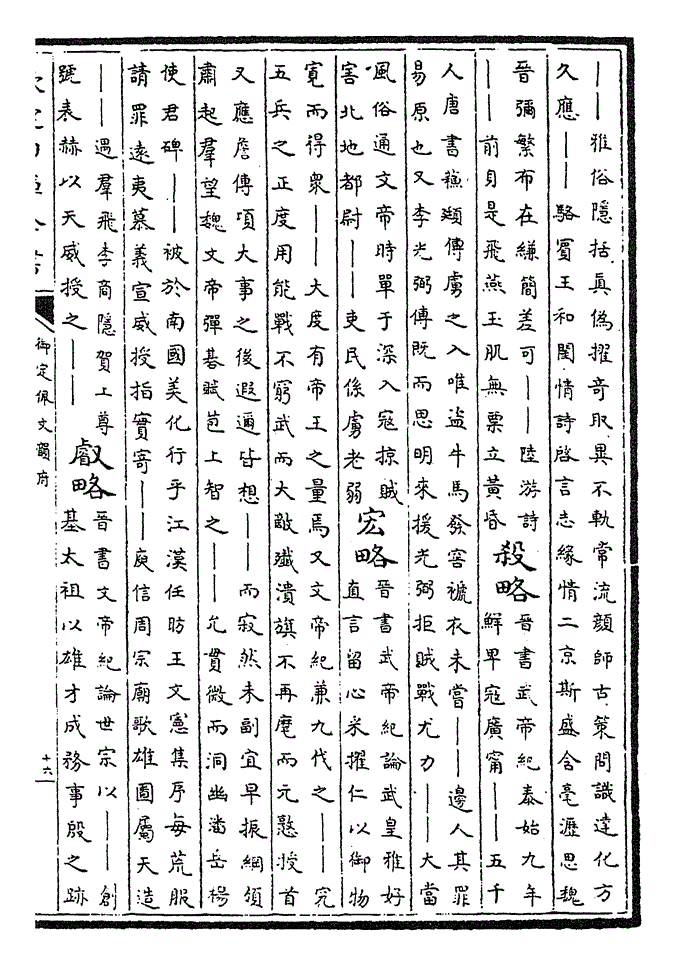 ——雅俗隱括真偽擢奇取異不軌常流顏師古策問識達化方
久應——駱賓王和閨情詩啓言志緣情二京斯盛含毫瀝思魏
晉彌繁布在縑簡差可——陸游詩
——前身是飛燕玉肌無粟立黃昏
殺略
晉書武帝紀泰始九年
鮮卑寇廣甯——五千
人唐書蘇頲傳虜之入唯盜牛馬發窖褫衣未嘗——邊人其罪
易原也又李光弼傳既而思明來援光弼拒賊戰尤力——大當
風俗通文帝時單于深入寇掠賊
害北地都尉——吏民係虜老弱
宏略
晉書武帝紀論武皇雅好
直言留心采擢仁以御物
寬而得衆——大度有帝王之量焉又文帝紀兼九代之——究
五兵之正度用能戰不窮武而大敵殲潰旗不再麾而元憝授首
又應詹傳項大事之後遐邇皆想——而寂然未副宜早振綱領
肅起羣望魏文帝彈棊賦苞上智之——允貫微而洞幽潘岳楊
使君碑——被於南國美化行乎江漢任昉王文憲集序每荒服
請罪遠夷慕義宣威授指實寄——庾信周宗廟歌雄圖屬天造
——遇羣飛李商隱賀上尊
號表赫以天威授之——
叡略
晉書文帝紀論世宗以——創
基太祖以雄才成務事殷之跡
御定佩文韻府
十六